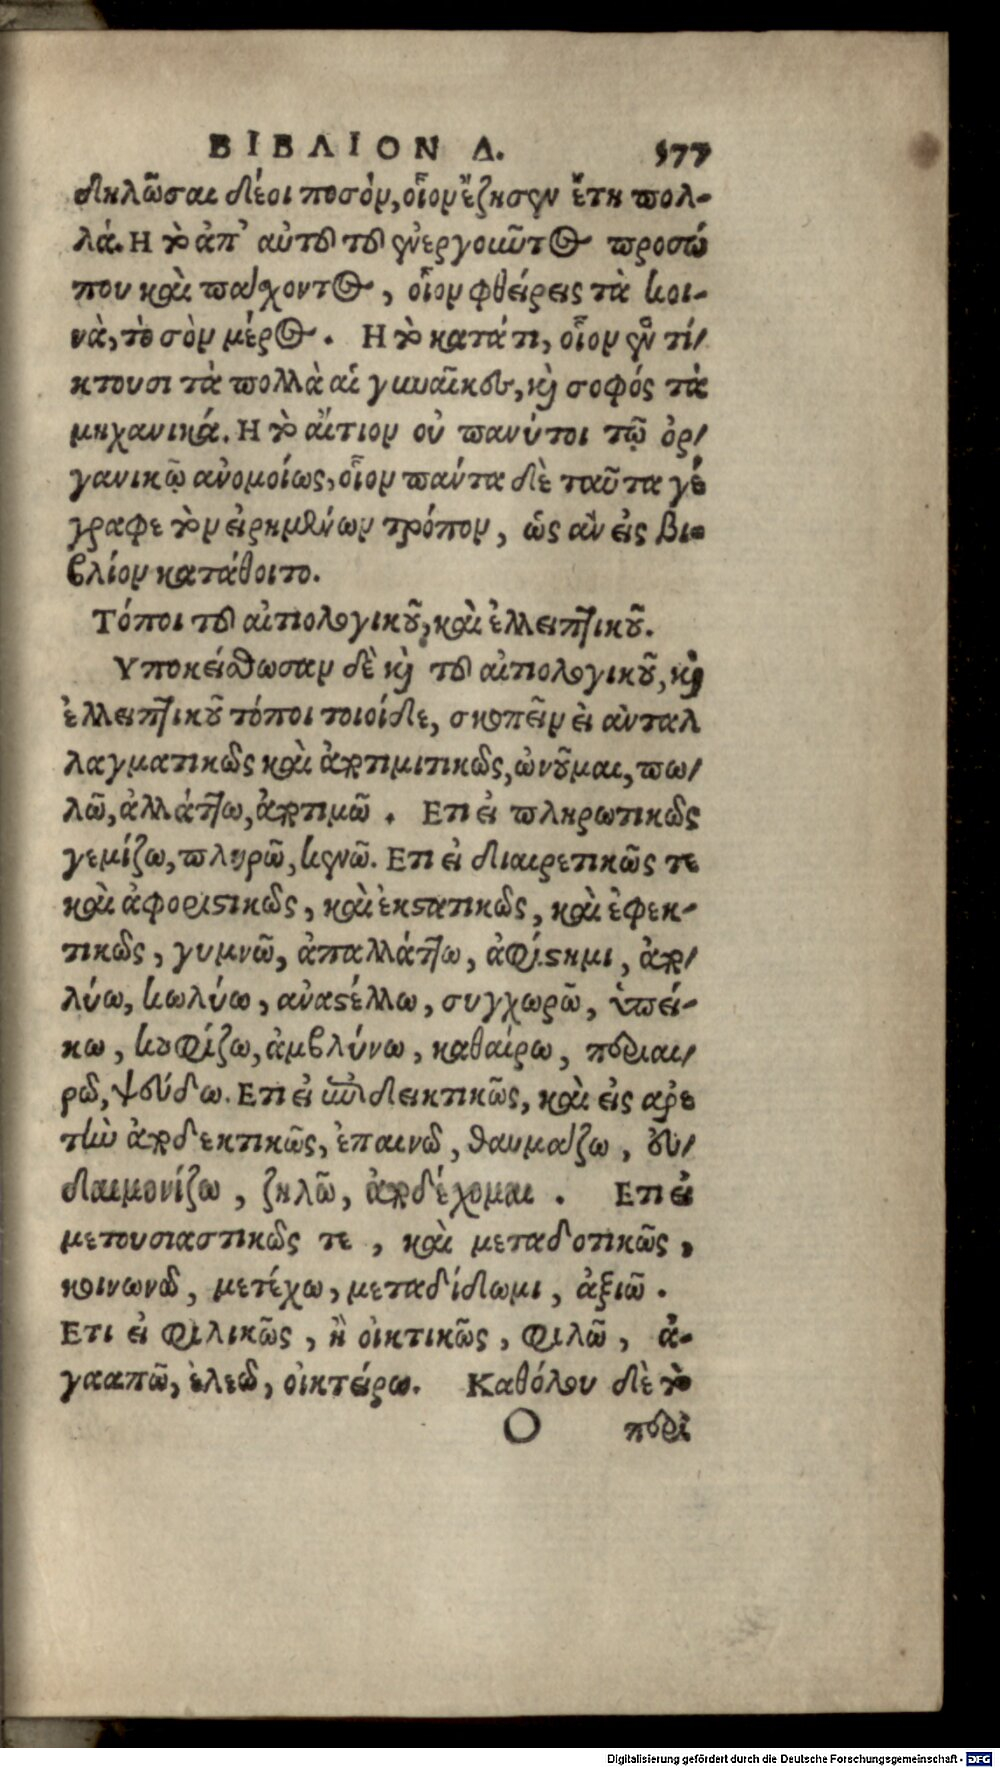 ΒΙΒΛΙΟΝ Δ. 177
δηλῶσαι δέοι ποσὸν, οἷον ἔζησεν ἔτη πολ-
λά. Η τὸ ἀπ' αὐτοῦ τοῦ ἐνεργοιῶτος προσώ
που καὶ πάχοντος, οἷον φθείρεις τὰ κοι-
νὰ, τὸ σὸν μέρος. Η τὸ κατάτι, οἷον ἓν τί/
κτουσι τὰ πολλὰ αἱ γυναῖκες, καὶ σοφός τὰ
μηχανικά. Η τὸ αἴτιον οὐ πανύτοι τῷ ὀρ/
γανικῷ ανομοίως, οἷον πάντα δὲ ταῦτα γέ
γραφε τὸν εἰρημένων τρόπον, ὡς αν εἰς βι-
βλίον κατάθοιτο.
Τόποι τοῦ αἰτιολογικοῦ, καὶ ἐλλειπτικοῦ.
Υποκείσθωσαν δὲ καὶ τοῦ αἰτιολογικοῦ, καὶ
ἐλλειπτικοῦ τόποι τοιοίδε, σκοπεῖν εἰ ἀνταλ
λαγματικῶς καὶ ἀντιμιτικῶς, ὠνοῦμαι, πω/
λῶ, ἀλλάττω, ἀντιμῶ. Ετι εἰ πληρωτικῶς
γεμίζω, πλυρῶ, κενῶ. Ετι εἰ διαιρετικῶς τε
καὶ ἀφοριστικῶς, καὶ ἐκστατικῶς, καὶ ἐφεκ-
τικῶς, γυμνῶ, ἀπαλλάττω, ἀφίστημι, παρ/
λύω, κωλύω, αναστέλλω, συγχωρῶ, ὑπεί-
κω, κουφίζω, ἀμβλύνω, καθαίρω, περιαι/
ρῶ, ψεύδω. Ετι εἰ ἐπιδεικτικῶς, καὶ εἰς αρε
τὴν παραδεκτικῶς, ἐπαινῶ, θαυμάζω, εὐ/
δαιμονίζω, ζηλῶ, παραδέχομαι. Ετι εἰ
μετουσιαστικῶς τε, καὶ μεταδοτικῶς,
κοινωνῶ, μετέχω, μεταδίδωμι, ἀξιῶ.
Ετι εἰ φιλικῶς, ἢ οἰκτικῶς, φιλῶ, ἀ-
γααπῶ, ἐλεῶ, οἰκτείρω. Καθόλου δὲ τὸ
O περὶ
Digitalisierung gefördert durch die Deutsche Forschungsgemeinschaft - DFG